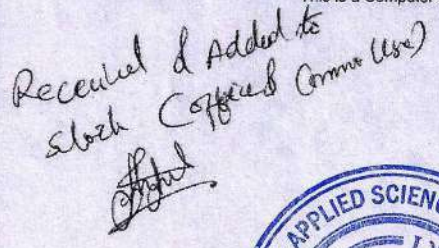 This is a Computer
Received & Added to
stock (Office & Common Use)
APPLIED SCIENC